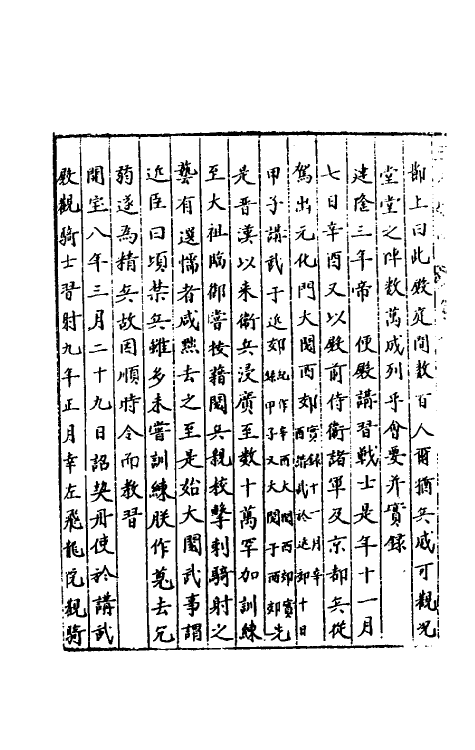 鄙上曰此殿庭間數百人爾猶兵威可觀況
堂堂之陣數萬成列乎會要并實錄
建隆三年帝　便殿講習戰士是年十一月
七日辛酉又以殿前侍衛諸軍及京都兵從
駕出元化門大閱西郊實錄十一月辛酉講武於近郊十日
甲子講武于近郊紀作辛酉大閱西郊實錄甲子又大閱于西郊先
是晋漢以來衛兵浸廣至數十萬罕加訓練
至大祖臨御嘗按籍閱兵親校擊刺騎射之
藝有選懦者咸㸃去之至是始大閱武事謂
近臣曰頃禁兵雖多未嘗訓練朕作蒐去冗
弱遂為精兵故因順時令而教習
開寶八年三月二十九日詔契丹使於講武
殿觀騎士習射九年正月幸左飛龍院觀騎